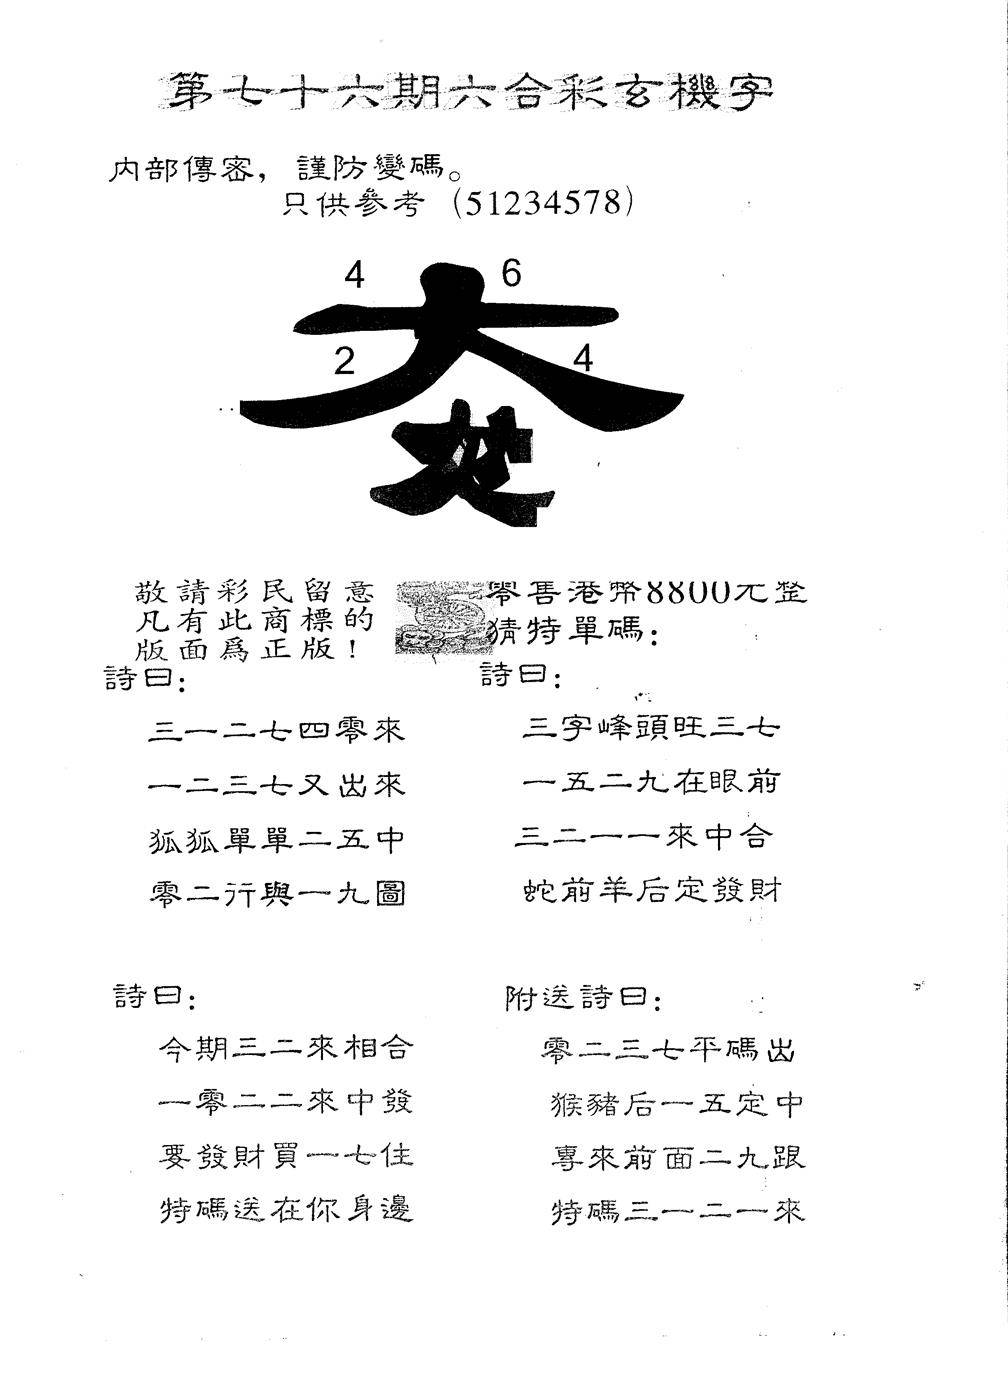 第七十六期六合彩玄機字
内部傳密，謹防變碼。
只供參考（51234578）
4 6
2 4
敬請彩民留意
凡有此商標的
版面爲正版！
零售港幣8800元整
猜特單碼：
詩曰：
三一二七四零來
一二三七又出來
狐狐單單二五中
零二行與一九圖
詩曰：
三字峰頭旺三七
一五二九在眼前
三二一一來中合
蛇前羊后定發財
詩曰：
今期三二來相合
一零二二來中發
要發財買一七住
特碼送在你身邊
附送詩曰：
零二三七平碼出
猴豬后一五定中
專來前面二九跟
特碼三一二一來